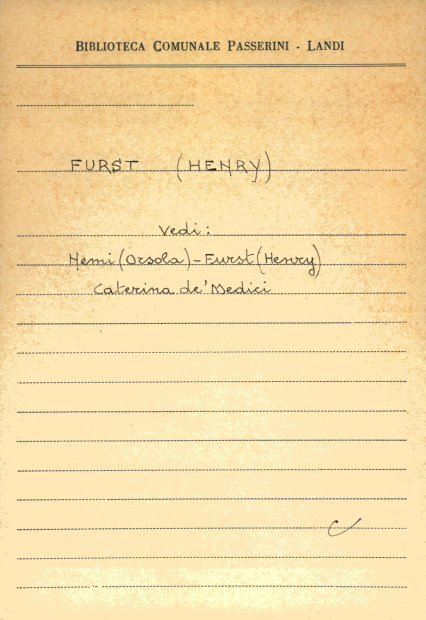 BIBLIOTECA COMUNALE PASSERINI - LANDI
FURST (HENRY)
Vedi:
Nemi (Orsola) - Furst (Henry)
Caterina de' Medici